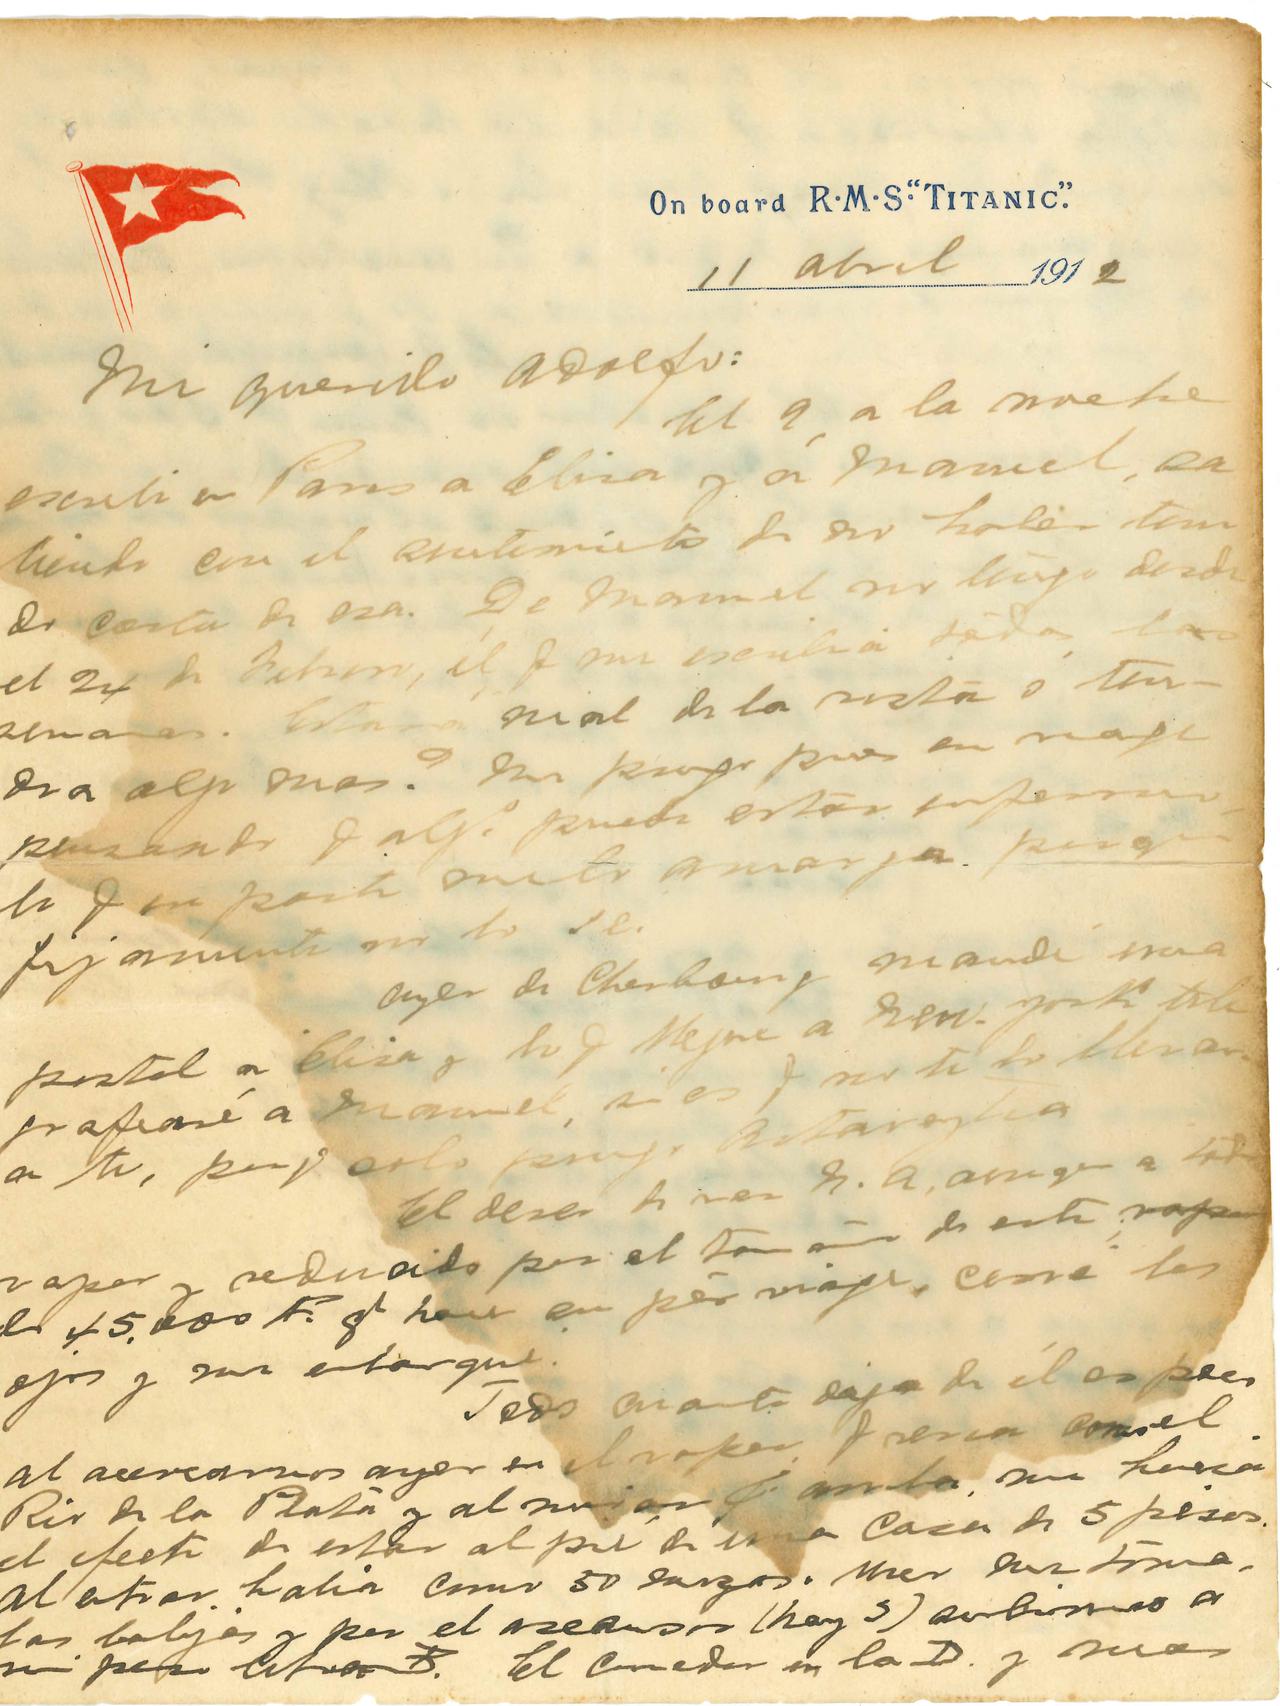 On board R·M·S·"TITANIC".
11 abril 1912
Mi querido Adolfo:
El 9, a la noche
escribi en Paris a Elisa y á Manuel, sa
liendo con el sentimiento de no haber teni
do carta de esa. De Manuel no tengo desde
el 24 de Febrero, él q me escribia todas las
semanas. Estará mal de la vista ó ten-
dra algo mas? Me pongo pues en viage
pensando q algo puede estar enfermo,
lo q en parte me lo amarga. porque
fijamente no lo se.
ayer de Cherbourg mandé una
postal a Elisa y hoy q llegue a New-york tele
grafiaré a Manuel, si es q no te lo
a ti, porq solo pongo
El deseo de ver N. A, aunque a todo
vapor y seducido por el tamaño de este vapor
de 45.000 Ts. q hace su per viage, cerré los
ojos y me embarqué.
Todo cuanto diga de él es poco
al acercarnos ayer en el vapor q seria como el
Rio de la Plata y al mirar p. arriba, me hacia
el efecto de estar al pié de una casa de 5 pisos.
Al entrar habia como 50 mozos. Uno me toma
las balijas y por el ascensor (hay 3) subimos a
mi piso letra B. El comedor en la D. y mas